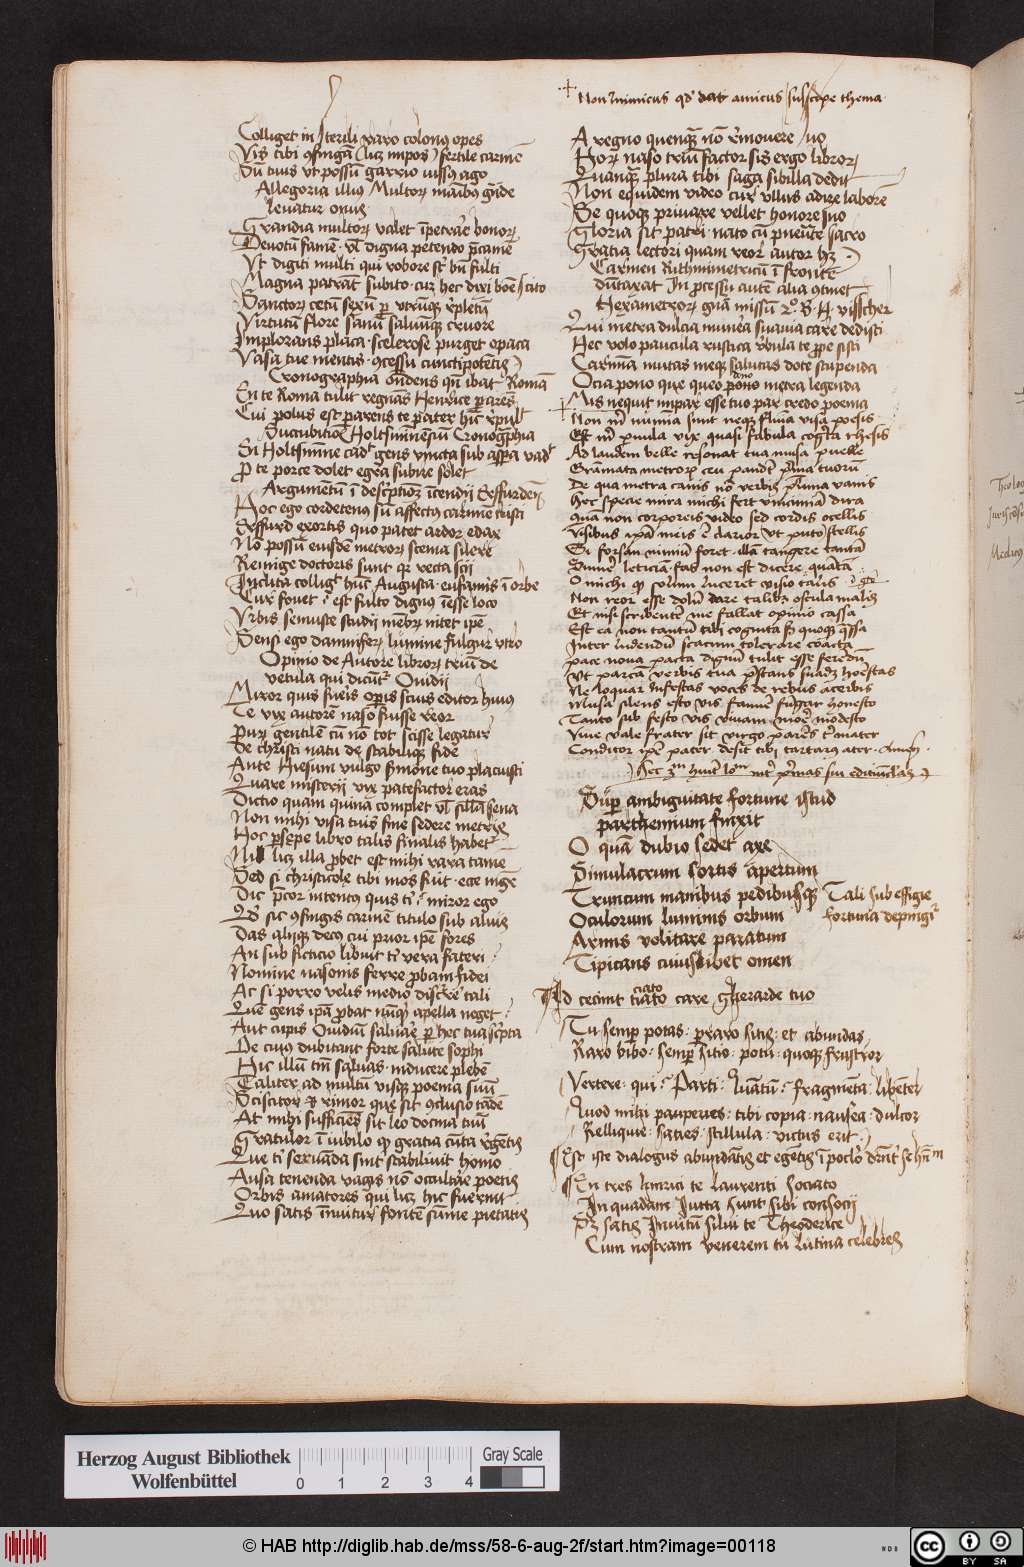 Colliget in sterili raro colonus opes
Vis tibi ꝯfingā (lꝫ impos) fertile carmē
Dū tuis vt possū garrio iussꝰ ago
Allegoria illiꝰ Multoꝝ maībꝰ gͣnde
leuatur onus
Grandia multoꝝ valet īpetrar̄ honoꝝ
Deuotū famē vl̓ digna petendo p̄camē
Vt digiti multi qui robore st̄ bn̄ fulti
Magna patrāt subito cur hec dixi boē scito
Sanctoꝝ cetū sexū ꝑ vtrūqꝫ r̓pletū
Virtutū flore sanū saluūqꝫ cruore
Implorans placa scelerose purget opaca
Vasa tue mentis ꝯcessu cunctipotētis
Cronographia on̄dens qn̄ ibat Romā
En te Roma tulit regnās Henrice ꝑ ares
Cui polus est parens te pater hic
Holtsmīnēsiū Cronogͣphia
Si Holtsmīne cadt gens vincta sub aspra vadt
P te porce dolet egra subire solet
Argumētū ī descͥptiōꝫ īcendii Erffurden̄
Hoc ego cordetenꝰ sū affectꝰ carmīe tristi
Erffurd exortis quo patet ardor edax
Nō possū eiusdē metroꝝ scema silere
Reinige doctoris sunt qꝛ recta scii
Inclita collig̓ hūc Augusta eufamis ī orbe
Cur fouet ī est fulto dignꝰ īesse loco
Vrbis semuste studii mēbrꝫ nitet ipē
Sensi ego damnifeꝝ lumine fulgur vtro
Opinio de Autore libroꝝ triū de
vetula qui dicūt̓ Ouidii
Miror quis fueis oꝑis scius editor huiꝰ
Te vix autorē naso fuisse reor
Puꝝ gentilē cū nō tot scisse legatur
De christi natu de stabiliqꝫ fide
Ante Hiesum vulgo sermone tuo placuisti
Quare misterii vix patefactor eras
Dictio quam quina complet vl̓ sillā sena
Non mihi visa tuis sine sedere metris
Hoc ꝑsepe libro talis finalis habet̓
Nil lꝫ illa ꝓbet est mihi rara tamē
Sed si christicole tibi mos fūit ece nigē
Dic p̄cor intentꝰ quis tꝰ miror ego
Qd̄ sic ꝯfingis carmē titulo sub aliuis
Das aliqꝫ decꝰ cui prior ipē fores
An sub ficticio libuit tͥ vera fateri
Nomine nasonis ferre ꝓbam fidei
Ac si porro velis medio discr̓e tali
Quē gens ipā ꝓbat nūqͣ apella neget
Aut cupis Ouidiū saluar̄e ꝑ hec tua scͥpta
De cuiꝰ dubitant forte salute sophi
Hic illū tm̄ saluas inducere plebē
Taliter ad multū visqꝫ poema suū
Sciscitor ⁊ rimor que sit ꝯclusio tādē
At mihi sufficiēs sit leo docma tuū
Gratulor ī iubilo ꝙ gratia cūta r̓gētis
Que tͥ seruāda sint stabiliuit homo
Ausa tenenda vagis nō occultar̄e poetis
Orbis amatores qui lꝫ hic fuerint
Quo satis īnuitur̄ fontē sūme pietatis
Non īnimicus qd̄ dat amicus suscipe thema
A regno quenqͣ nō r̓mouere suo
Hoꝝ naso triū factor sis ergo libroꝝ
Quanqͣ plura tibi saga sibilla dedit
Non equidem video cur vllus adire laborē
Se quoqꝫ priuare vellet honore suo
Gloria sit patri nato cū pneūte sacro
Gratia lectori quam reor autor hꝫ
Carmen Rithmimetricū ī fronte
dūtaxat In ꝓcessu autē alia ꝯtinet
Hexametroꝝ gnā missū 2º B. H. visscher
Qui metra dulcia munera suauia care dedisti
Hec volo paucula rustica v̓bula te ꝓpe sisti
Carmina mutas meqꝫ salutas dote stupenda
Ocia pono que queo pono dono metra legenda
Mis nequit impar esse tuo par credo poema
Non mͥ numīa sunt neqꝫ flumīa visa poesis
Est mͥ pinula vix quasi fabula cogͥta rhesis
Ad laudem belle resonat tua musa puelle
Gramata metroꝝ ceu pandͥt prima tuorū
De qua metra canis nō verbis plurima vanis
Hec specie mira michi fert vincimīa dira
Qua non corporeis video sed cordis ocellis
Visibus ipā meis ē clarior vt puto stellis
Si forsan nimiū foret illā tangere tantā
Sumē leticiā fas non est dicere quātā
O michi ꝙ solum luceret visio talis
Non reor esse dolū dare talibꝫ oscula malis
Et nisi scribentē me fallat opinio cassa
Est ea non tantū tibi cognita sꝫ quoqꝫ q̄ssa
Inter ludendū scacum tolerare coacta
pace noua pacta dignū tulit esse feredū
Vt parca verbis tua p̄stans suadꝫ honestas
Ne loquar infestas voces de rebus acerbis
Musa silens esto vis famē fūgar honesto
Tanto sub festo vis viuam more modesto
Viue vale frater sit virgo parēs tͥ mater
Conditor ipē pater desit tibi tartarꝰ ater. Amen.
Sup̄ ambiguitate fortune istud
parthenium finxit
O quā dubio sedet axe
Simulacrum sortis apertum
Truncum manibus pedibusqꝫ
Oculorum luminis orbum
Armis volitare paratum
Tipicans cuiuslibet omen
Tali sub effigie
fortuna depingit̓
Id cecinit ciato tiato care gherarde tuo
Tu semꝑ potas: ꝑraro sitis: et abundas
Raro bibo: semꝑ sitio: potu: quoqꝫ frustror
Vertere: qui: Parti: luātū: fragmēta: libēter
Quod mihi pauperies: tibi copia: nausea: dulcor
Relliquie: saties: stillula: victus erit.
Est iste dialogus abundātis et egētis ī poclo
En tres limrici te Laurenti sociato
In quadam Iutta sunt sibi consocii
Sꝫ satis inuitum silui te Theoderice
Cum nostram venerem tu lutina celebres
Theolog
Jurista
Medicꝰ
Herzog August Bibliothek
Wolfenbüttel
0 1 2 3 4
Gray Scale
© HAB http://diglib.hab.de/mss/58-6-aug-2f/start.htm?image=00118
WDB
cc BY SA